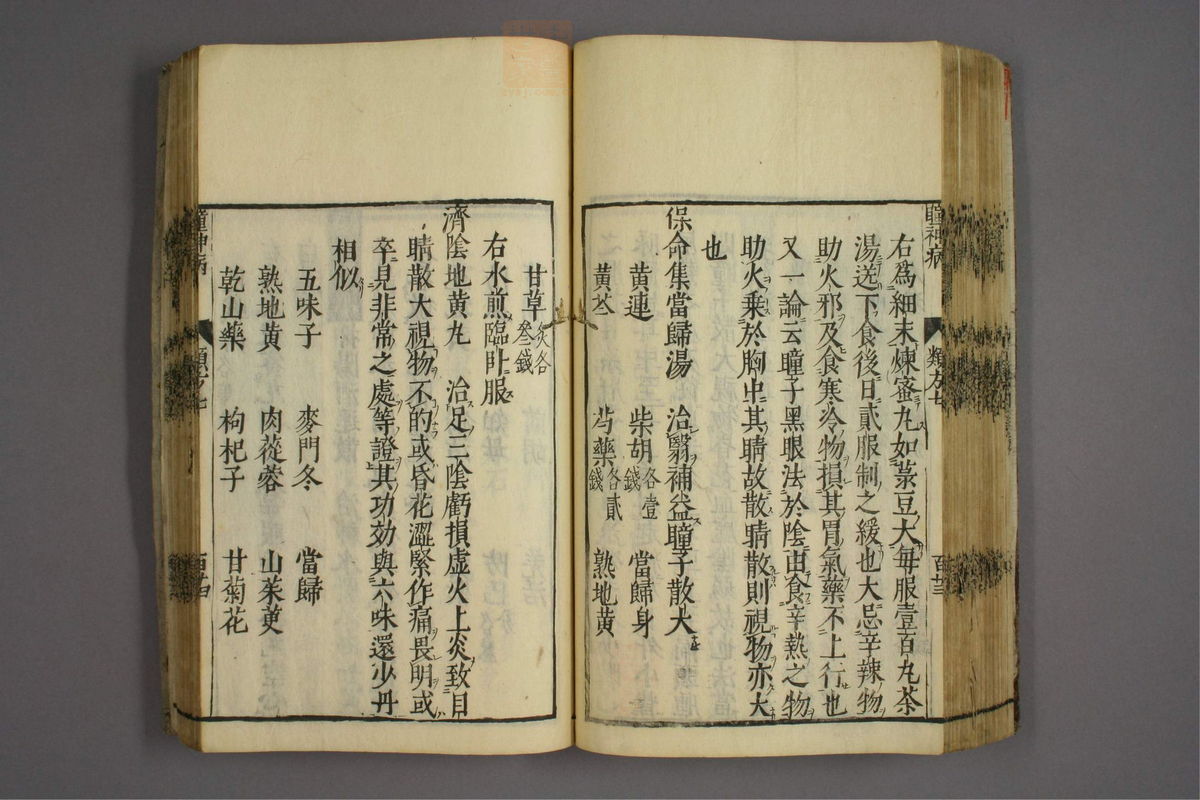 瞳神病
類方七
百廿三
右爲細末煉蜜丸如菉豆大每服壹百丸茶
湯送下食後日貳服制之緩也大忌辛辣物
助火邪及食寒冷物損其胃氣藥不上行也
又一論云瞳子黑眼法於陰由食辛熱之物
助火乗於胸中其睛故散睛散則視物亦大
也
保命集當歸湯 治翳補益瞳子散大
黃連 柴胡各壹錢 當歸身
黃芩 芍藥各貳錢 熟地黃
甘草炙各叁錢
右水煎臨卧服
濟陰地黃丸 治足三陰虧損虛火上炎致目
睛散大視物不的或昏花澀緊作痛畏明或
卒見非常之處等證其功効與六味還少丹
相似
五味子 麥門冬 當歸
熟地黃 肉蓯蓉 山茱萸
乾山藥 枸杞子 甘菊花
瞳神病
類方七
百廿四